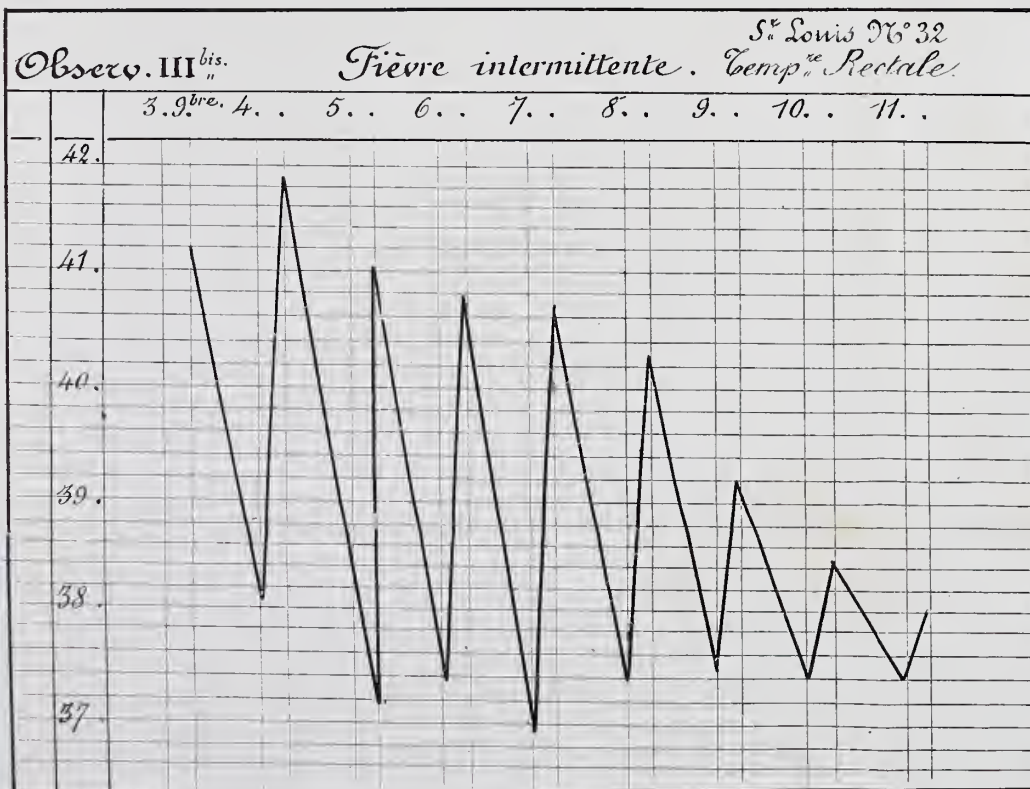 Ste Louis No 32
Observ. III bis. Fièvre intermittente. Tempre Rectale.
3.9bre. 4. . 5. . 6. . 7. . 8. . 9. . 10. . 11. .
42.
41.
40.
39.
38.
37.